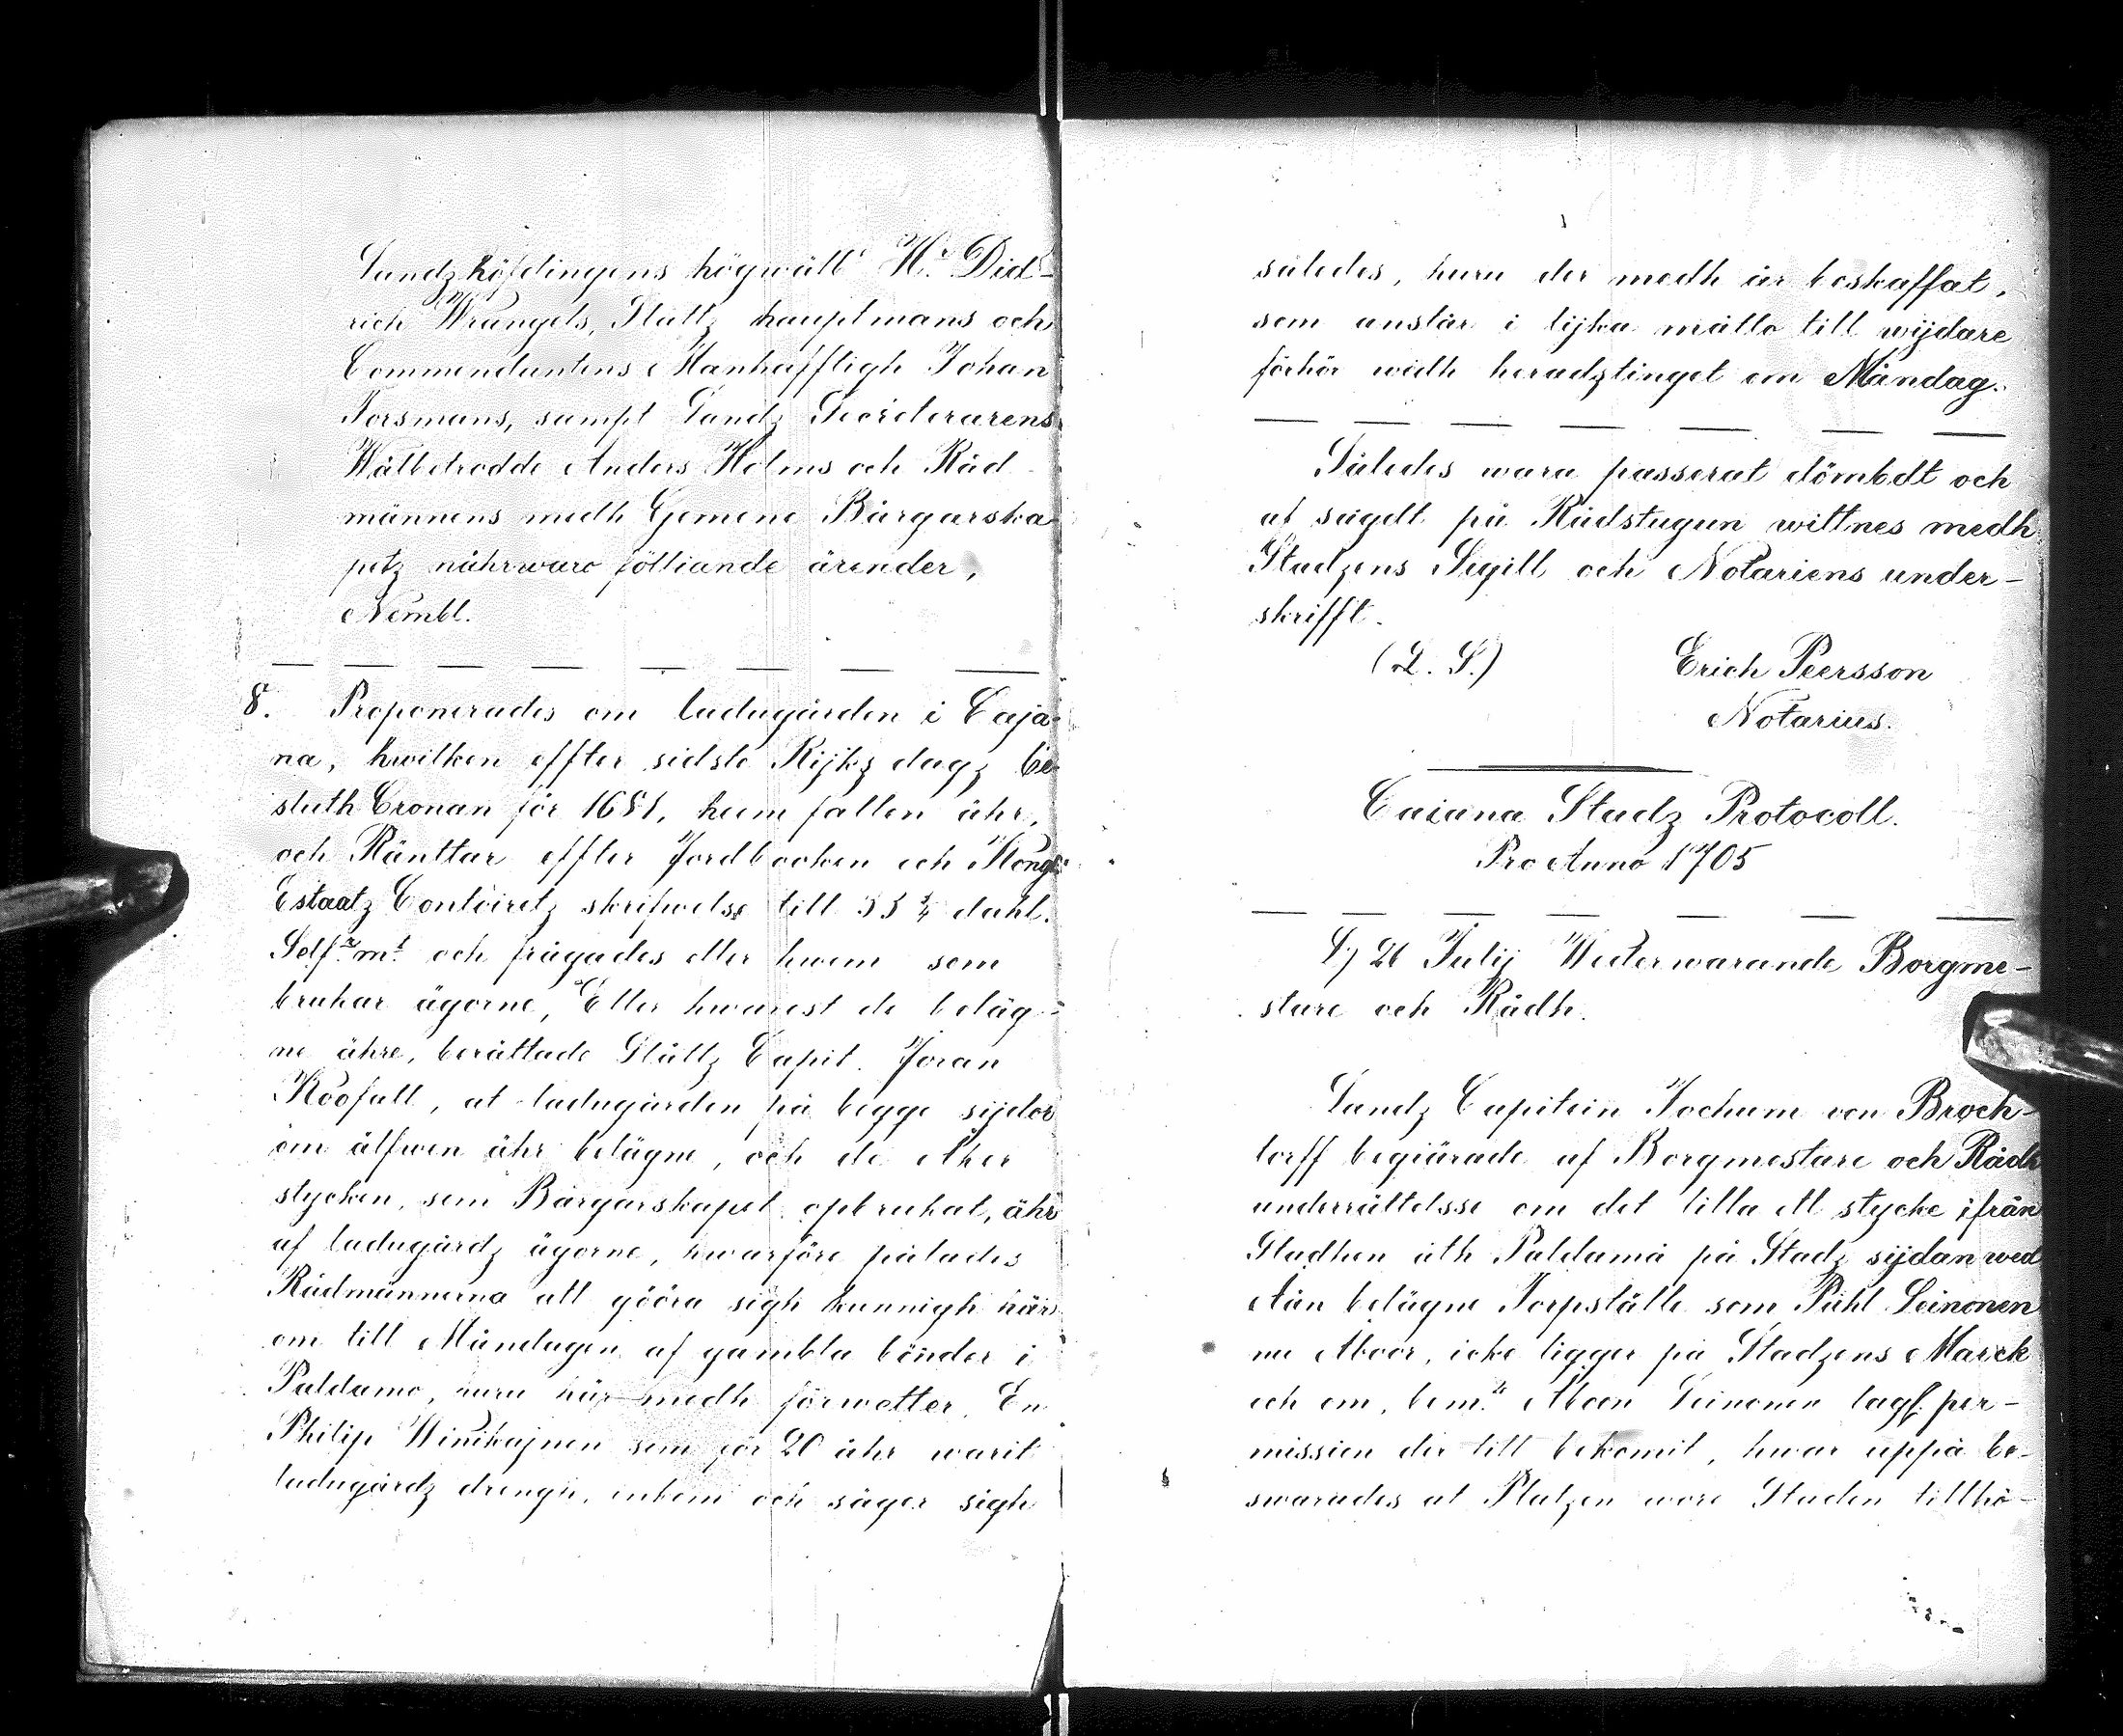 Landzhöfdingens högwälb. Hr Did-
rich Wrangels, Slåttz hauptmans och
Commendantens Manhafftigh Johan
Forsmans, sampt Landz Secreterarens
Wälbetrodde Anders Holms och Råd-
männens medh Gemene Bärgarska-
petz nährwaro föltiande ärender,
Nembl.
8. Proponerades om ladugården i Caja-
na, hwilken effter sidste Rijkz dagz be-
sluth Cronan för 1681, heem fallen ähr,
och Ränttar effter Jordbooken och Kongl.
Estaatz Contoiretz skrifwelse till 33 1/4 dahl.
Solf.r m.t och frågades eller hwem som
brukar ägorne, Eller hwarest de beläg-
ne ähre, berättade Slåttz Capit. Joran
Roofall, at ladugården på begge sijdor
om älfwen ähr belägne, och de Åker
stycken, som Bärgarskapet opbrukat, ähr
af ladugårdz ägorne, hwarföre pålades
Rådmännerna att gööra sigh kunnigh här
om till Måndagen af gambla bönder i
Paldamo, huru här medh förwetter. En
Philip Winikajnen som för 20 åhr warit
ladugårdz drengh, inkom och säger sigh
således, huru der medh är beskaffat,
som anstår i lijka måtto till wijdare
förhör widh heradztinget om Måndag.
Således wara passerat dömbdt och
af sagdt på Rådstugun wittnes medh
Stadzens Sigill och Notariens under-
skrifft.
(L. S.) Erich Peersson
Notarius.
Caiana Stadz Protocoll.
Pro Anno 1705
D. 26 Julij Wederwarande Borgme-
stare och Rådh.
Landz Capitein Jochum von Broch-
torff begiärade af Borgmestare och Rådh
underrättelsse om det lilla ett stycke ifrån
Stadhen åth Paldama på Stadz sijdan wed
Åån belägne Torpställe som Påhl Leinonen
nu Aboor, icke ligger på Stadzens Marck
och om, bem.te Åboen Leinonen lagl. per-
mission der till bekomit, hwar uppå be-
swarades at Platzen wore Staden tillhö-